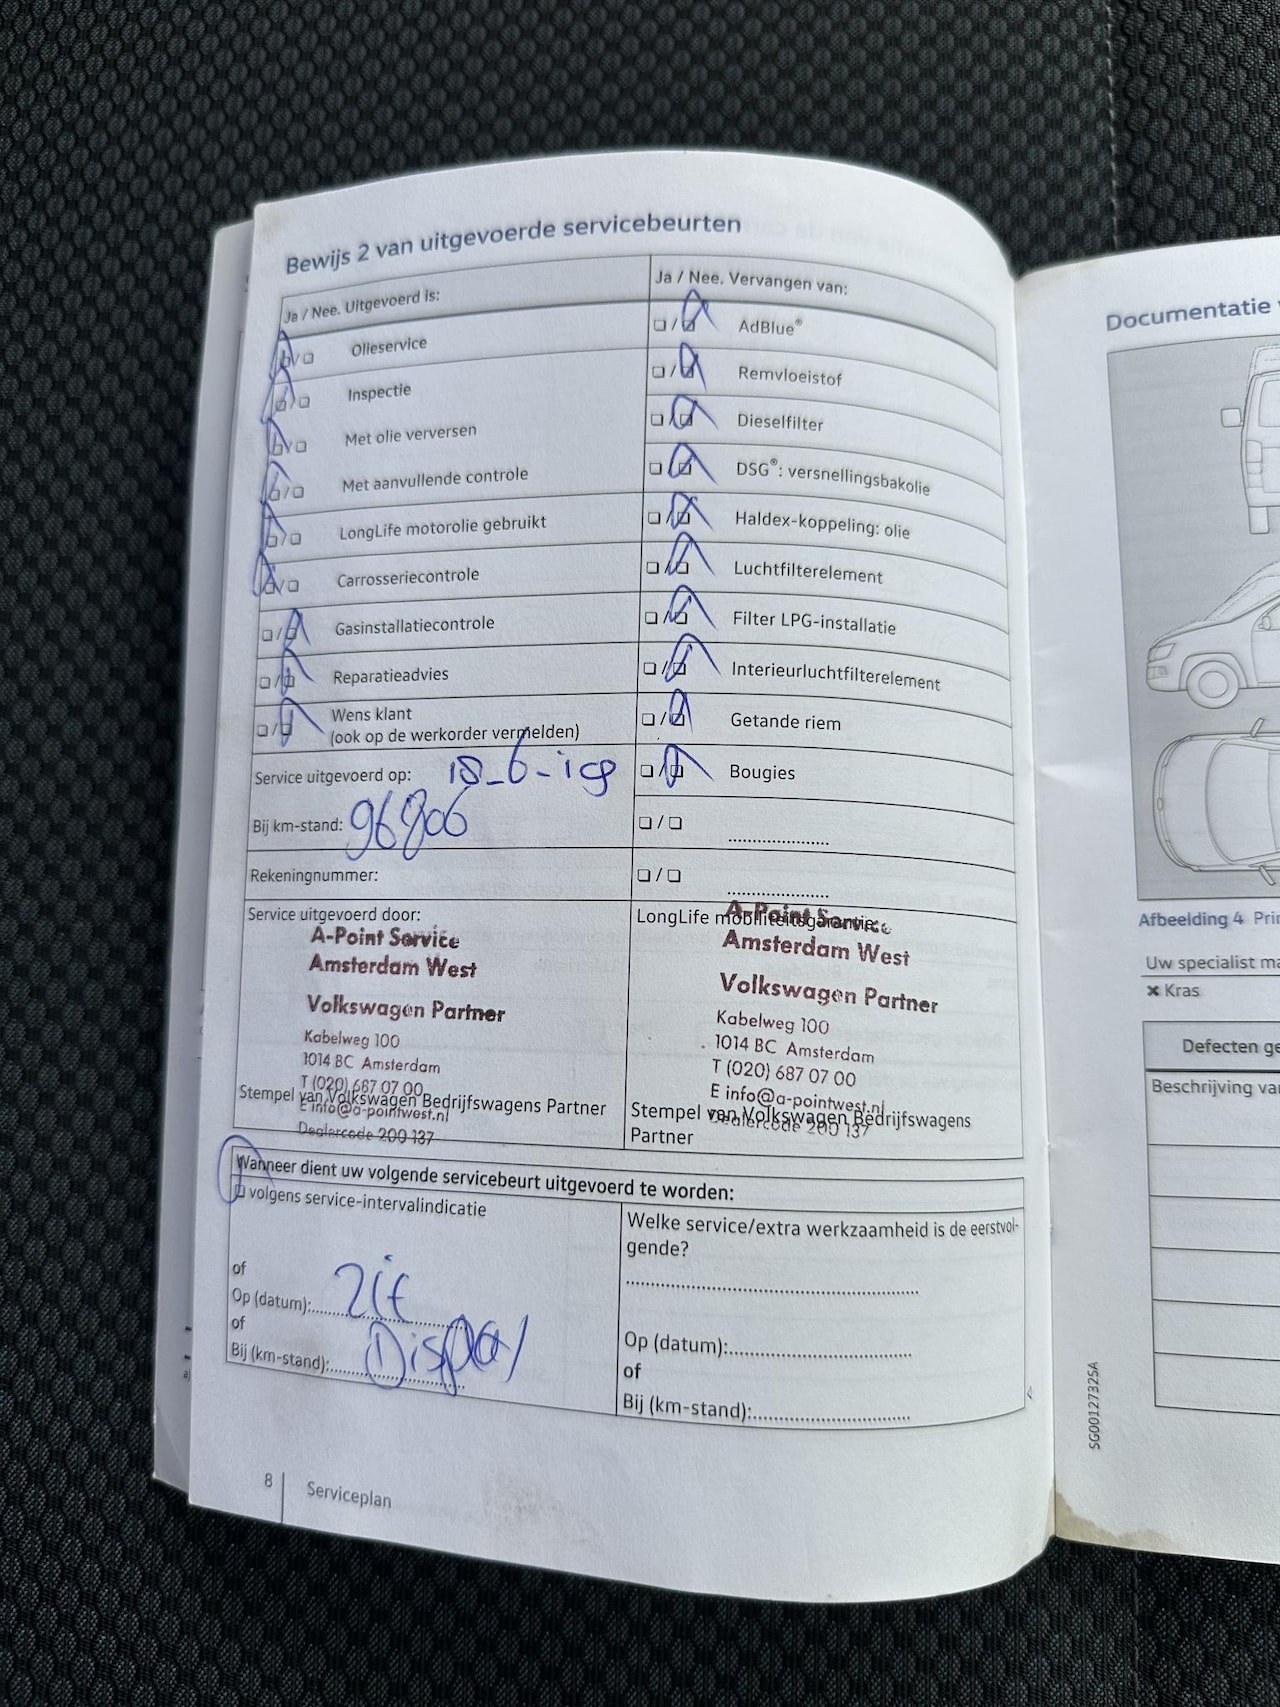 Bewijs 2 van uitgevoerde servicebeurten
Ja / Nee. Uitgevoerd is:
Olieservice
Inspectie
Met olie verversen
Met aanvullende controle
LongLife motorolie gebruikt
Carrosseriecontrole
Gasinstallatiecontrole
Reparatieadvies
Wens klant
(ook op de werkorder vermelden)
Service uitgevoerd op:
Bij km-stand:
Rekeningnummer:
Ja / Nee. Vervangen van:
AdBlue®
Remvloeistof
Dieselfilter
DSG®: versnellingsbakolie
Haldex-koppeling: olie
Luchtfilterelement
Filter LPG-installatie
Interieurluchtfilterelement
Getande riem
Bougies
Service uitgevoerd door:
A-Point Service
Amsterdam West
Volkswagen Partner
Kabelweg 100
1014 BC Amsterdam
T (020) 687 07 00
E info@a-pointwest.nl
Stempel van Volkswagen Bedrijfswagens Partner
Dealercode 200 137
LongLife mobiliteitsgarantie:
A-Point Service
Amsterdam West
Volkswagen Partner
Kabelweg 100
1014 BC Amsterdam
T (020) 687 07 00
E info@a-pointwest.nl
Dealercode 200 137
Stempel van Volkswagen Bedrijfswagens
Partner
Wanneer dient uw volgende servicebeurt uitgevoerd te worden:
volgens service-intervalindicatie
of
Op (datum):
of
Bij (km-stand): Display
Welke service/extra werkzaamheid is de eerstvol-
gende?
Op (datum):
of
Bij (km-stand):
8 Serviceplan
Documentatie
Afbeelding 4
Uw specialist
× Kras
Defecten
Beschrijving
SG0012732SA